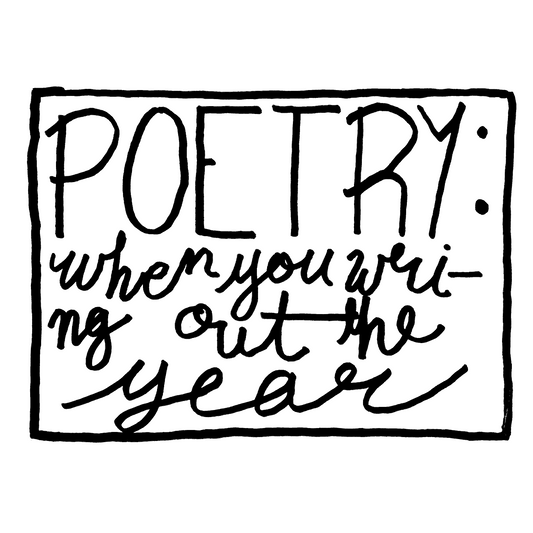 POETRY:
when you wri-
ng out the
year